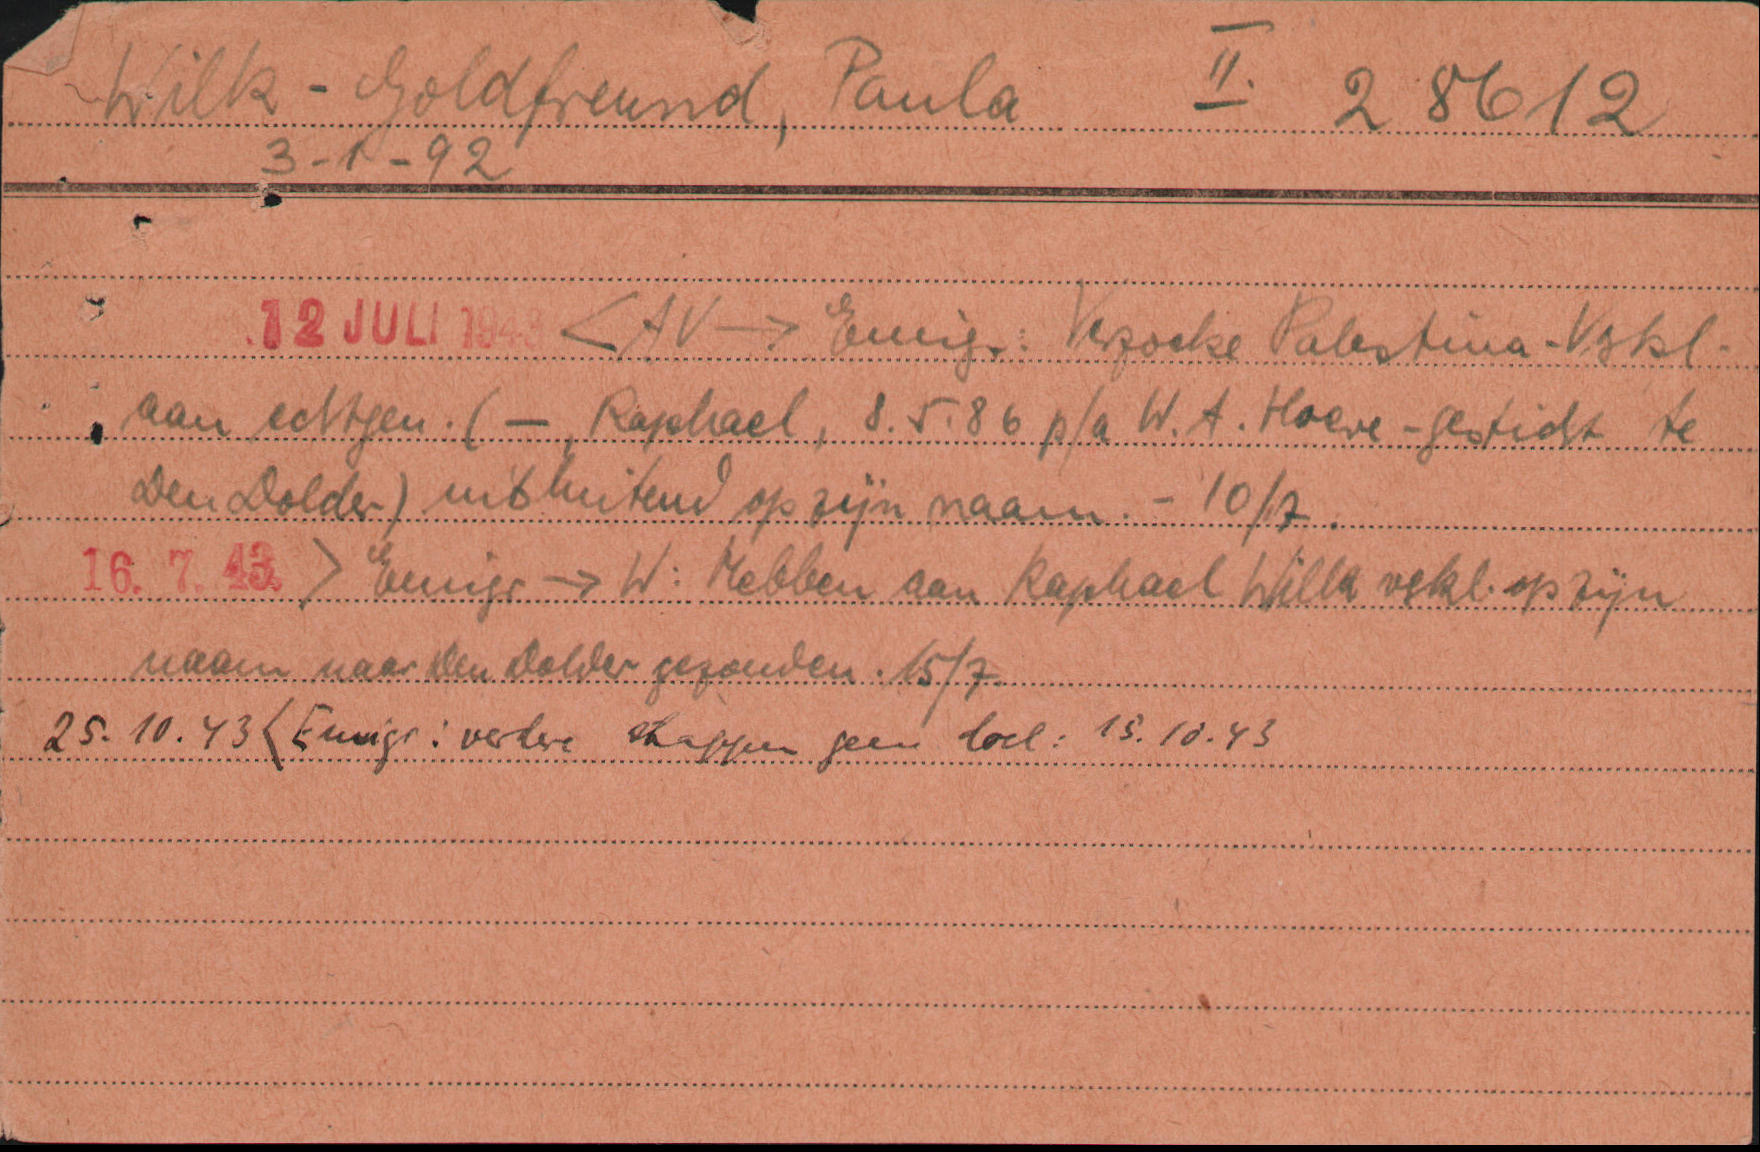 Wilk - Goldfreund, Paula II. 28612
3-1-92
12 JULI 1943 < AV → Emigr.: Verzoeke Palestina-Vskl.
aan echtgen. (—, Raphael, 8.5.86 p/a W.A. Hoeve-gesticht te
Den Dolder) uitsluitend op zijn naam. - 10/7.
16. 7. 43. > Emigr → W: Hebben aan Raphael Wilk vskl. op zijn
naam naar Den Dolder gezonden. 15/7.
25.10.43 < Emigr: verdere stappen geen doel: 15.10.43